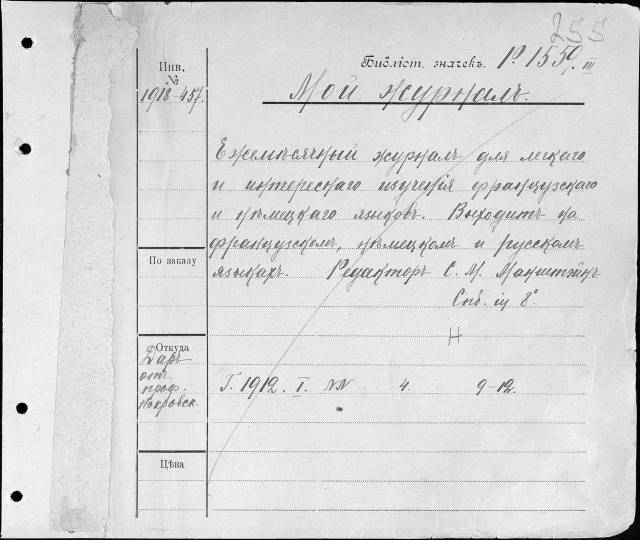 255
Библіот. значекъ. Р. 1559. III
Инв.
№
1918-457.
Мой журналъ.
Ежемѣсячный журналъ для легкаго
и интереснаго изученія французскаго
и нѣмецкаго языковъ. Выходитъ на
французскомъ, нѣмецкомъ и русскомъ
языкахъ. Редакторъ С. М. Манштейнъ
Спб. in 8°
По заказу
Н
Откуда
Даръ
отъ
проф.
Покровск.
Г. 1912. I. NN 4. 9-12.
Цѣна